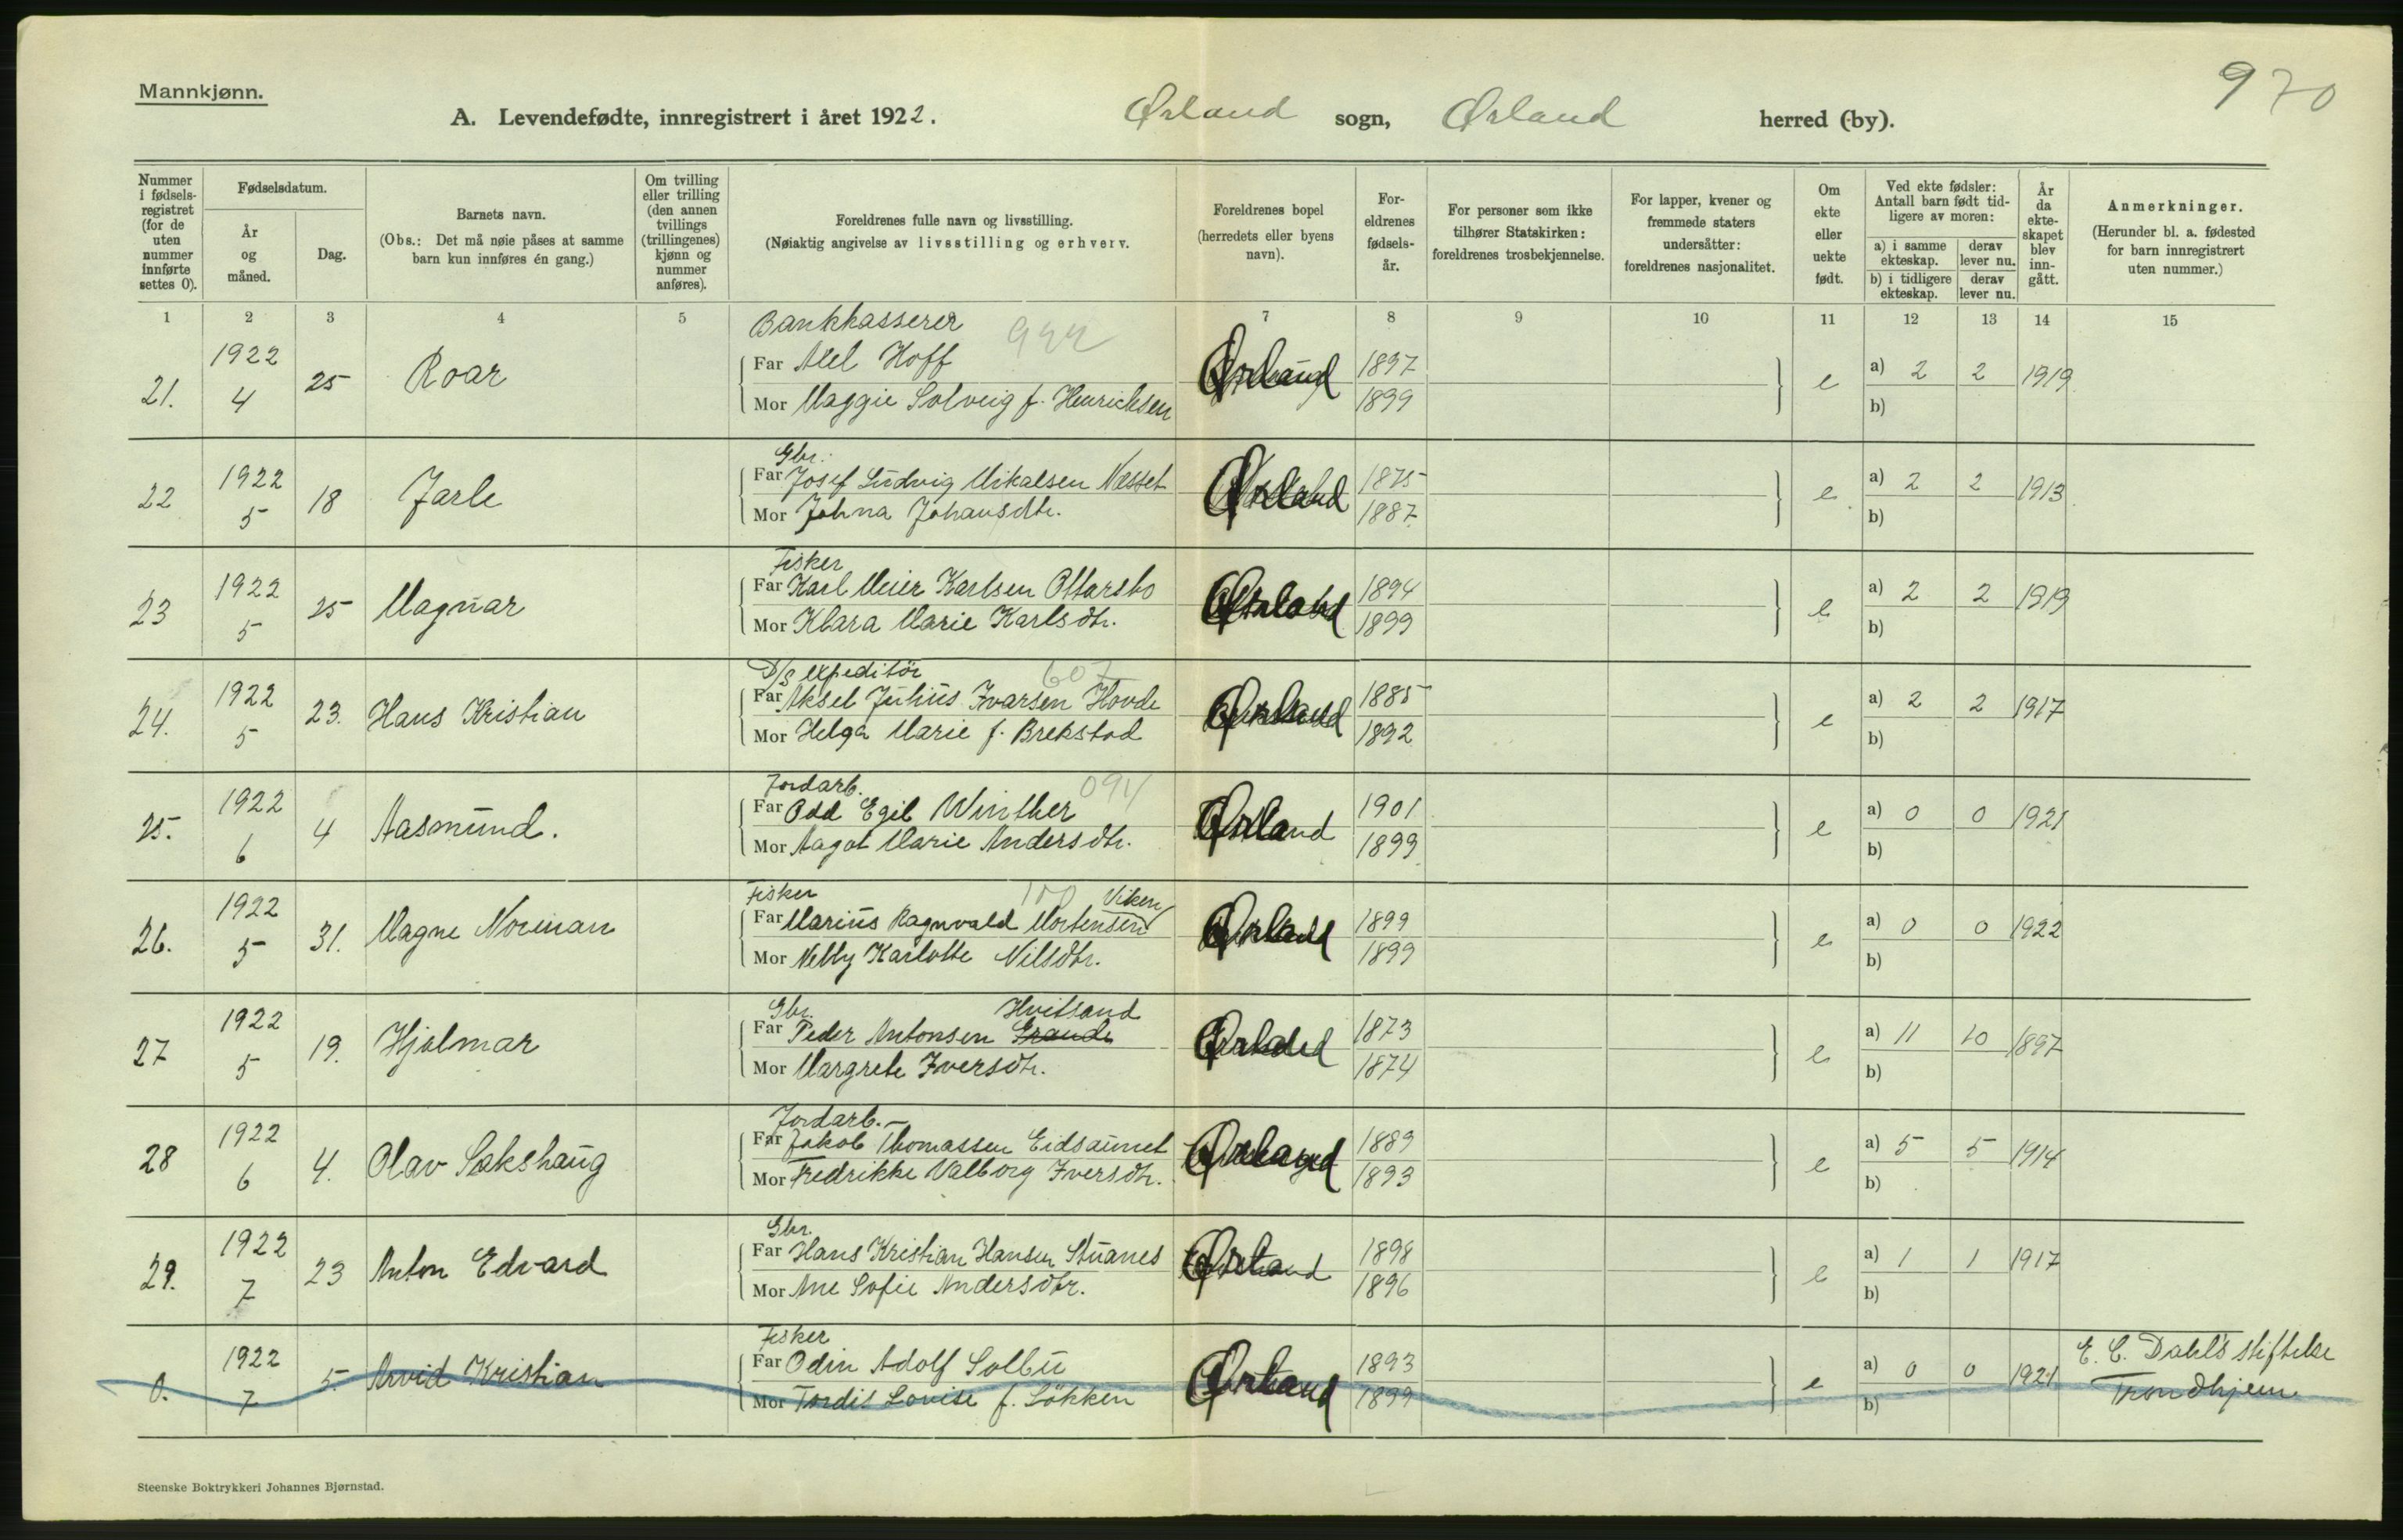 Mannkjønn.
970
A. Levendefødte, innregistrert i året 1922. Ørland sogn, Ørland herred (by).
Nummer i fødsels-registret (for de uten nummer innførte settes 0).
Fødselsdatum.
År og måned.
Dag.
Barnets navn.
(Obs.: Det må nøie påses at samme barn kun innføres én gang.)
Om tvilling eller trilling (den annen tvillings (trillingenes) kjønn og nummer anføres).
Foreldrenes fulle navn og livsstilling.
(Nøiaktig angivelse av livsstilling og erhverv.
Foreldrenes bopel (herredets eller byens navn).
For-eldrenes fødsels-år.
For personer som ikke tilhører Statskirken: foreldrenes trosbekjennelse.
For lapper, kvener og fremmede staters undersåtter: foreldrenes nasjonalitet.
Om ekte eller uekte født.
Ved ekte fødsler: Antall barn født tid-ligere av moren:
a) i samme ekteskap. derav lever nu.
b) i tidligere ekteskap. derav lever nu.
År da ekte-skapet blev inn-gått.
Anmerkninger.
(Herunder bl. a. fødested for barn innregistrert uten nummer.)
1 2 3 4 5 7 8 9 10 11 12 13 14 15
Bankkasserer
21. 1922 4 25 Roar Far Alel Hoff Ørland 1897 e a) 2 2 1919
Mor Maggie Solveig f. Henrichsen 1899 b)
Gbr.
22 1922 5 18 Jarle Far Josef Ludvig Mikalsen Næsset Ørland 1875 e a) 2 2 1913
Mor Johna Johansdtr. 1887 b)
Fisker
23 1922 5 25 Magnar Far Karl Meier Karlsen Ottarsbo Ørland 1894 e a) 2 2 1919
Mor Klara Marie Karlsdtr. 1899 b)
D/S expeditör 607
24. 1922 5 23. Hans Kristian Far Aksel Julius Ivarsen Hovde Ørland 1885 e a) 2 2 1917
Mor Helga Marie f. Brekstad 1892 b)
Jordarb.
25. 1922 6 4 Aasmund. Far Odd Egil Winther Ørland 1901 e a) 0 0 1921
Mor Aagot Marie Andersdtr. 1899 b)
Fisker Viken
26. 1922 5 31. Magne Norman Far Marius Ragnvald Mortensen Ørland 1899 e a) 0 0 1922
Mor Nelly Karlotte Nilsdtr. 1899 b)
Gbr. Hvitsand
27 1922 5 19. Hjalmar Far Peder Antonsen Grande Ørland 1873 e a) 11 10 1897
Mor Margrete Iversdtr. 1874 b)
Jordarb.
28 1922 6 4. Olav Sakshaug Far Jakob Thomassen Eidsaunet Ørland 1889 e a) 5 5 1914
Mor Fredrikke Valborg Iversdtr. 1893 b)
Gbr.
29. 1922 7 23 Anton Edvard Far Hans Kristian Hansen Stuanes Ørland 1898 e a) 1 1 1917
Mor Ane Sofie Andersdtr. 1896 b)
Fisker
0. 1922 7 5. Arvid Kristian Far Odin Adolf Solbu Ørland 1893 e a) 0 0 1921 E. C. Dahls stiftelse
Mor Tordis Lovise f. Løkken 1899 b) Trondhjem
Steenske Boktrykkeri Johannes Bjørnstad.